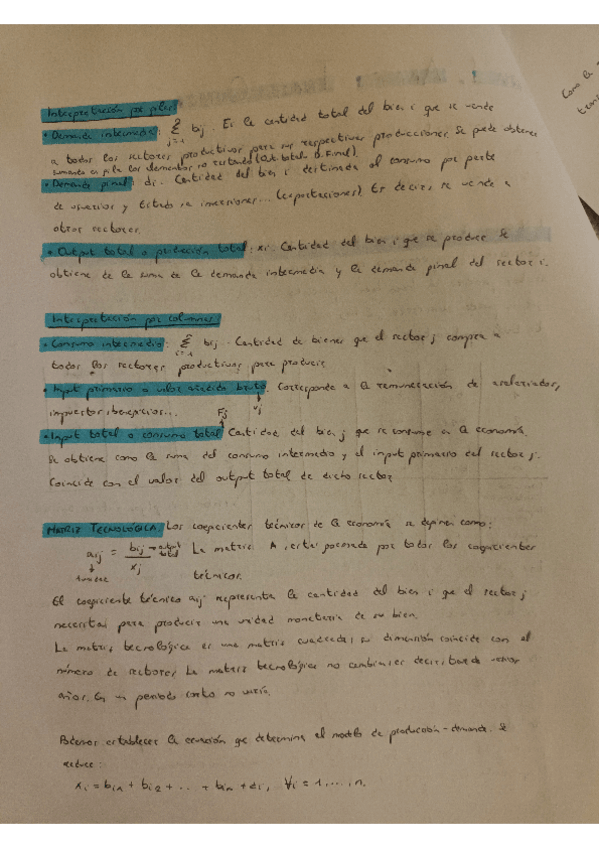 Interpretación por filas
• Demanda intermedia: Σ bij . Es la cantidad total del bien i que se vende
j=1
a todos los sectores productivos para sus respectivas producciones. Se puede obtener
sumando en fila los elementos o restando (Out. total - D. Final).
• Demanda final: di. Cantidad del bien i destinada al consumo por parte
de usuarios y Estado en inversiones... (exportaciones). Es decir, se vende a
otros sectores.
• Output total o producción total: xi. Cantidad del bien i que se produce. Se
obtiene de la suma de la demanda intermedia y la demanda final del sector i.
Interpretación por columnas
• Consumo intermedio: Σ bij . Cantidad de bienes que el sector j compra a
i=1
todos los sectores productivos para producir.
• Input primario o valor añadido bruto. Corresponde a la remuneración de asalariados,
impuestos, beneficios... Fj Vj
• Input total o consumo total. Cantidad del bien j que se consume en la economía.
Se obtiene como la suma del consumo intermedio y el input primario del sector j.
Coincide con el valor del output total de dicho sector.
MATRIZ TECNOLÓGICA. Los coeficientes técnicos de la economía se definen como:
aij = bij / xj → output total La matriz A, está formada por todos los coeficientes
técnicos.
El coeficiente técnico aij representa la cantidad del bien i que el sector j
necesita para producir una unidad monetaria de su bien.
La matriz tecnológica es una matriz cuadrada, su dimensión coincide con el
número de sectores. La matriz tecnológica no cambia, es decir,
años. En un periodo corto no varía.
Podemos establecer la ecuación que determina el modelo de producción-demanda. Se
reduce:
xi = bi1 + bi2 + ... + bin + di, ∀i = 1, ..., n.
Como la